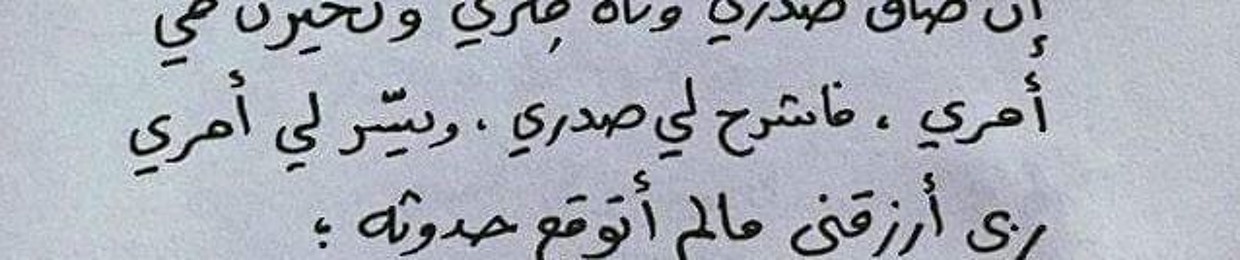 إن ضاق صدري وتاه فكري وتحيرت في
أمري ، فاشرح لي صدري ، ويسّر لي أمري
ربي أرزقني مالم أتوقع حدوثه ؛